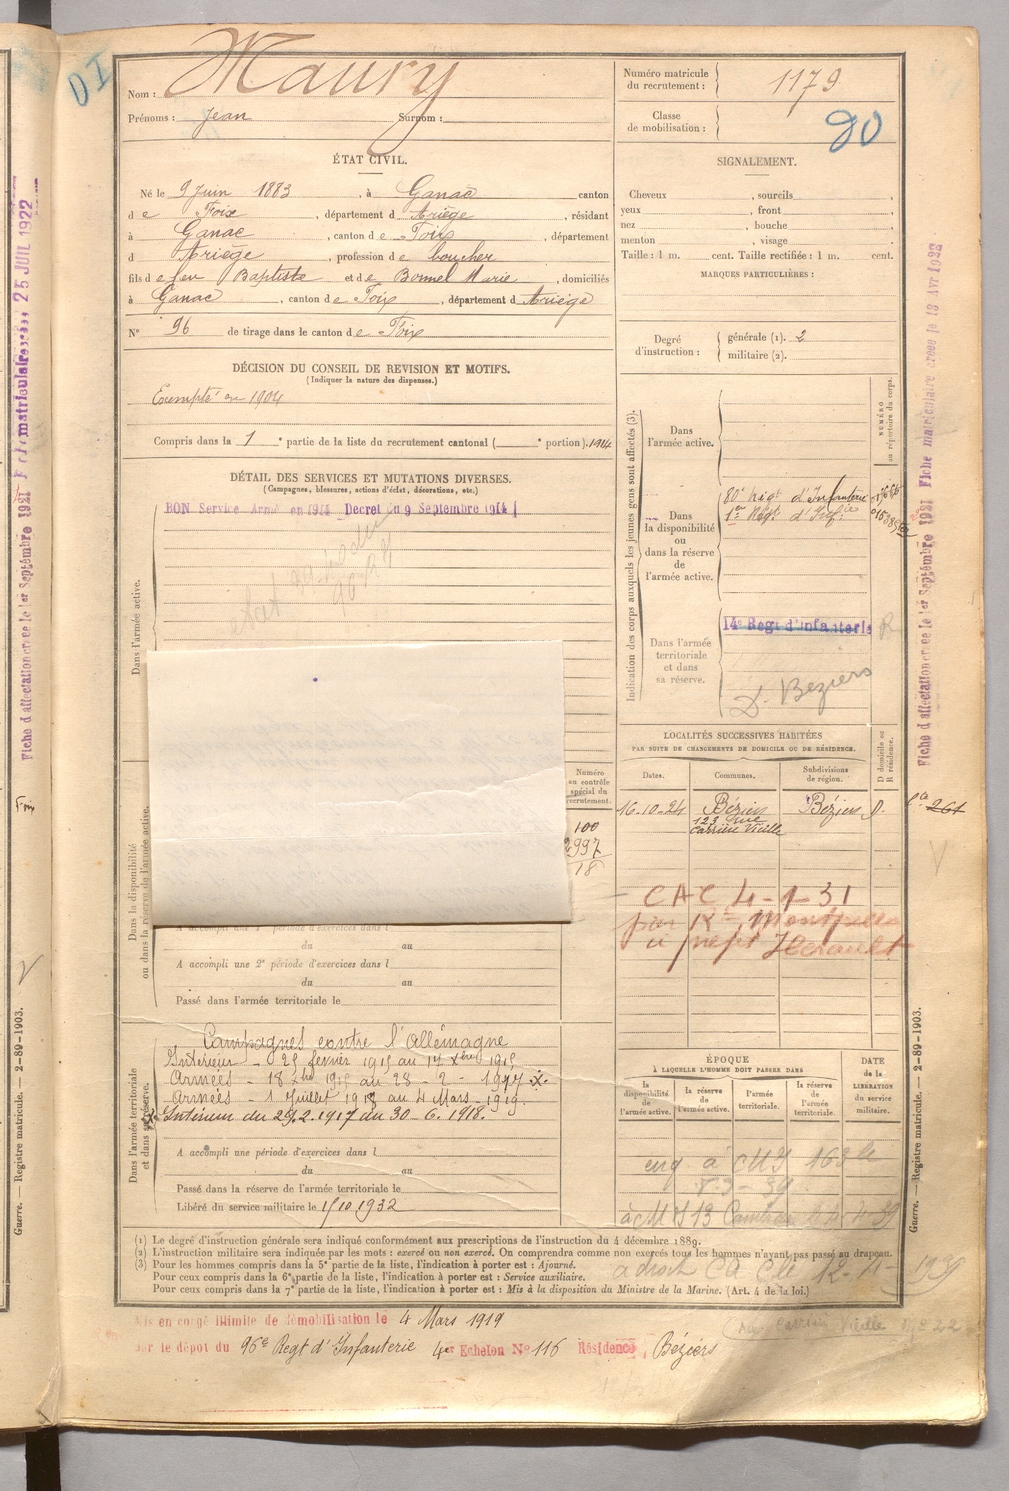 DI
Nom : Maury
Prénoms : Jean Surnom :
ÉTAT CIVIL.
Né le 9 Juin 1883, à Ganac canton
d e Foix, département d Ariège, résidant
à Ganac, canton d e Foix, département
d Ariège, profession de boucher
fils de feu Baptiste et de Bonnel Marie, domiciliés
à Ganac, canton de Foix, département d Ariège
N° 96 de tirage dans le canton de Foix
DÉCISION DU CONSEIL DE REVISION ET MOTIFS.
(Indiquer la nature des dispenses.)
Exempté en 1904
Compris dans la 1 e partie de la liste du recrutement cantonal ( e portion). 1914
DÉTAIL DES SERVICES ET MUTATIONS DIVERSES.
(Campagnes, blessures, actions d'éclat, décorations, etc.)
BON Service Armé en 1914 Decret du 9 Septembre 1914
Dans l'armée active.
Dans la disponibilité
ou dans la réserve de l'armée active.
Numéro
au contrôle
spécial du
recrutement.
100
2997
18
A accompli une 1re période d'exercices dans l
du au
A accompli une 2e période d'exercices dans l
du au
Passé dans l'armée territoriale le
Dans l'armée territoriale
et dans sa réserve.
Campagnes contre l'Allemagne
Intérieur - 25 février 1915 au 17 Xbre 1915
Armées - 18 Xbre 1915 au 28 - 2 - 1917 X.
Armées - 1 Juillet 1918 au 4 Mars 1919.
X Intérieur du 29.2.1917 au 30.6.1918.
A accompli une période d'exercices dans l
du au
Passé dans la réserve de l'armée territoriale le
Libéré du service militaire le 15/10 1932
Numéro matricule
du recrutement : 1179
Classe
de mobilisation :
SIGNALEMENT.
Cheveux, sourcils,
yeux, front,
nez, bouche,
menton, visage
Taille : 1 m. cent. Taille rectifiée : 1 m. cent.
MARQUES PARTICULIÈRES :
Degré
d'instruction :
générale (1). 2
militaire (2).
Indication des corps auxquels les jeunes gens sont affectés (3).
NUMÉRO
au répertoire du corps.
Dans
l'armée active.
Dans
la disponibilité
ou
dans la réserve
de
l'armée active.
80e Régt d'Infanterie
1er Régt d'Infie
Dans l'armée
territoriale
et dans
sa réserve.
14e Regt d'Infanterie
D. Beziers
LOCALITÉS SUCCESSIVES HABITÉES
PAR SUITE DE CHANGEMENTS DE DOMICILE OU DE RÉSIDENCE.
Dates. Communes. Subdivisions de région. D domicile ou R résidence.
16-10-24 Béziers Béziers D.
123 rue
Carrière Vieille
261
CAC 4-1-31
par Rt Montpellier
à préfet Hérault
ÉPOQUE
À LAQUELLE L'HOMME DOIT PASSER DANS
la disponibilité de l'armée active.
la réserve de l'armée active.
l'armée territoriale.
la réserve de l'armée territoriale.
DATE de la LIBÉRATION du service militaire.
(1) Le degré d'instruction générale sera indiqué conformément aux prescriptions de l'instruction du 4 décembre 1889.
(2) L'instruction militaire sera indiquée par les mots : exercé ou non exercé. On comprendra comme non exercés tous les hommes n'ayant pas passé au drapeau.
(3) Pour les hommes compris dans la 5e partie de la liste, l'indication à porter est : Ajourné.
Pour ceux compris dans la 6e partie de la liste, l'indication à porter est : Service auxiliaire.
Pour ceux compris dans la 7e partie de la liste, l'indication à porter est : Mis à la disposition du Ministre de la Marine. (Art. 4 de la loi.)
Mis en congé illimité de démobilisation le 4 Mars 1919
par le dépôt du 96e Regt d'Infanterie 4er Echelon No 116 Résidence, Béziers
Guerre. — Registre matricule. — 2-89-1903.
Guerre. — Registre matricule. — 2-89-1903.
Fiche d'affectation créée le 1er Septembre 1921
25 JUIL 1922
Fiche d'affectation créée le 1er Septembre 1921 Fiche matriculaire creee le 13 Avr 1922